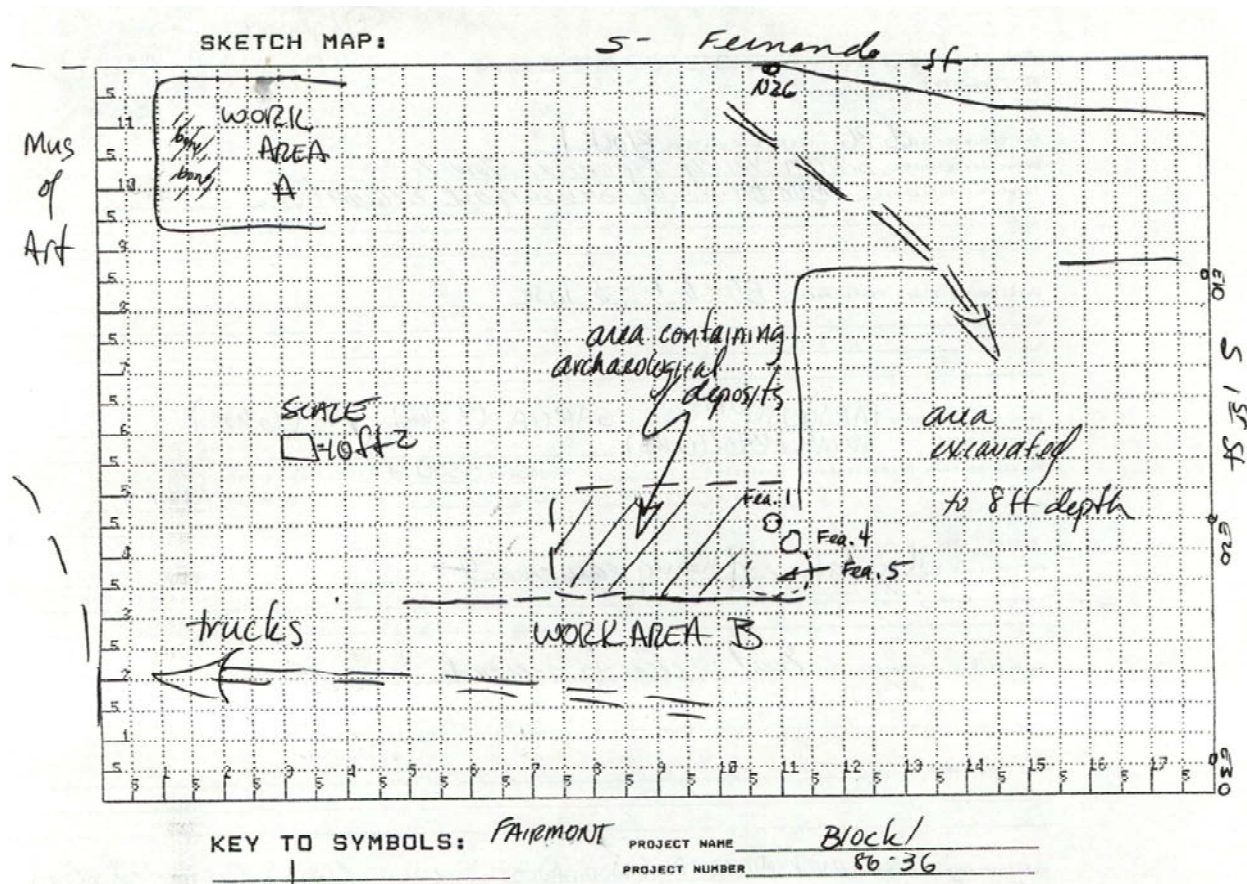 SKETCH MAP:
S- Fernando St
N26
WORK
AREA
A
Mus
of
Art
area containing
archaeological
deposits
SCALE
=10ft2
area
excavated
to 8ft depth
Fea. 1
Fea. 4
Fea. 5
trucks
WORK AREA B
S 1st St
E10
E20
0
5
11
5
10
5
9
5
5
7
5
6
5
5
5
4
5
3
5
2
5
1
5
5 1 5 2 5 3 5 4 5 5 5 6 5 7 5 8 5 9 5 10 5 11 5 12 5 13 5 14 5 15 5 16 5 17 5
KEY TO SYMBOLS: FAIRMONT PROJECT NAME Block 1
PROJECT NUMBER 86-36